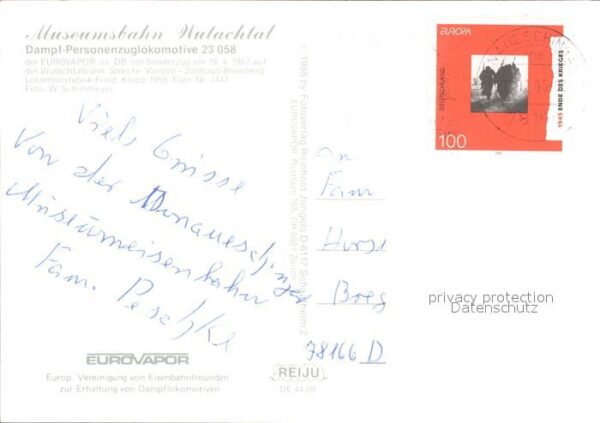 Museumsbahn Wutachtal
Dampf-Personenzuglokomotive 23 058
der EUROVAPOR, ex. DB, vor Sonderzug am 19. 4. 1987 auf
der Wutachtalbahn, Strecke: Weizen - Zollhaus-Blumberg.
Lokomotivfabrik Fried. Krupp 1955, Fabr. Nr. 3447
Foto: W. Schinmeyer
Viele Grüsse
von der Donaueschinger
Museumseisenbahn
Fam. Peschke
EUROVAPOR
Europ. Vereinigung von Eisenbahnfreunden
zur Erhaltung von Dampflokomotiven
REIJU
DE 44 09
An
Fam
Horst
Breg
78166 D
EUROPA
DEUTSCHLAND
1945 ENDE DES KRIEGES
100
privacy protection
Datenschutz